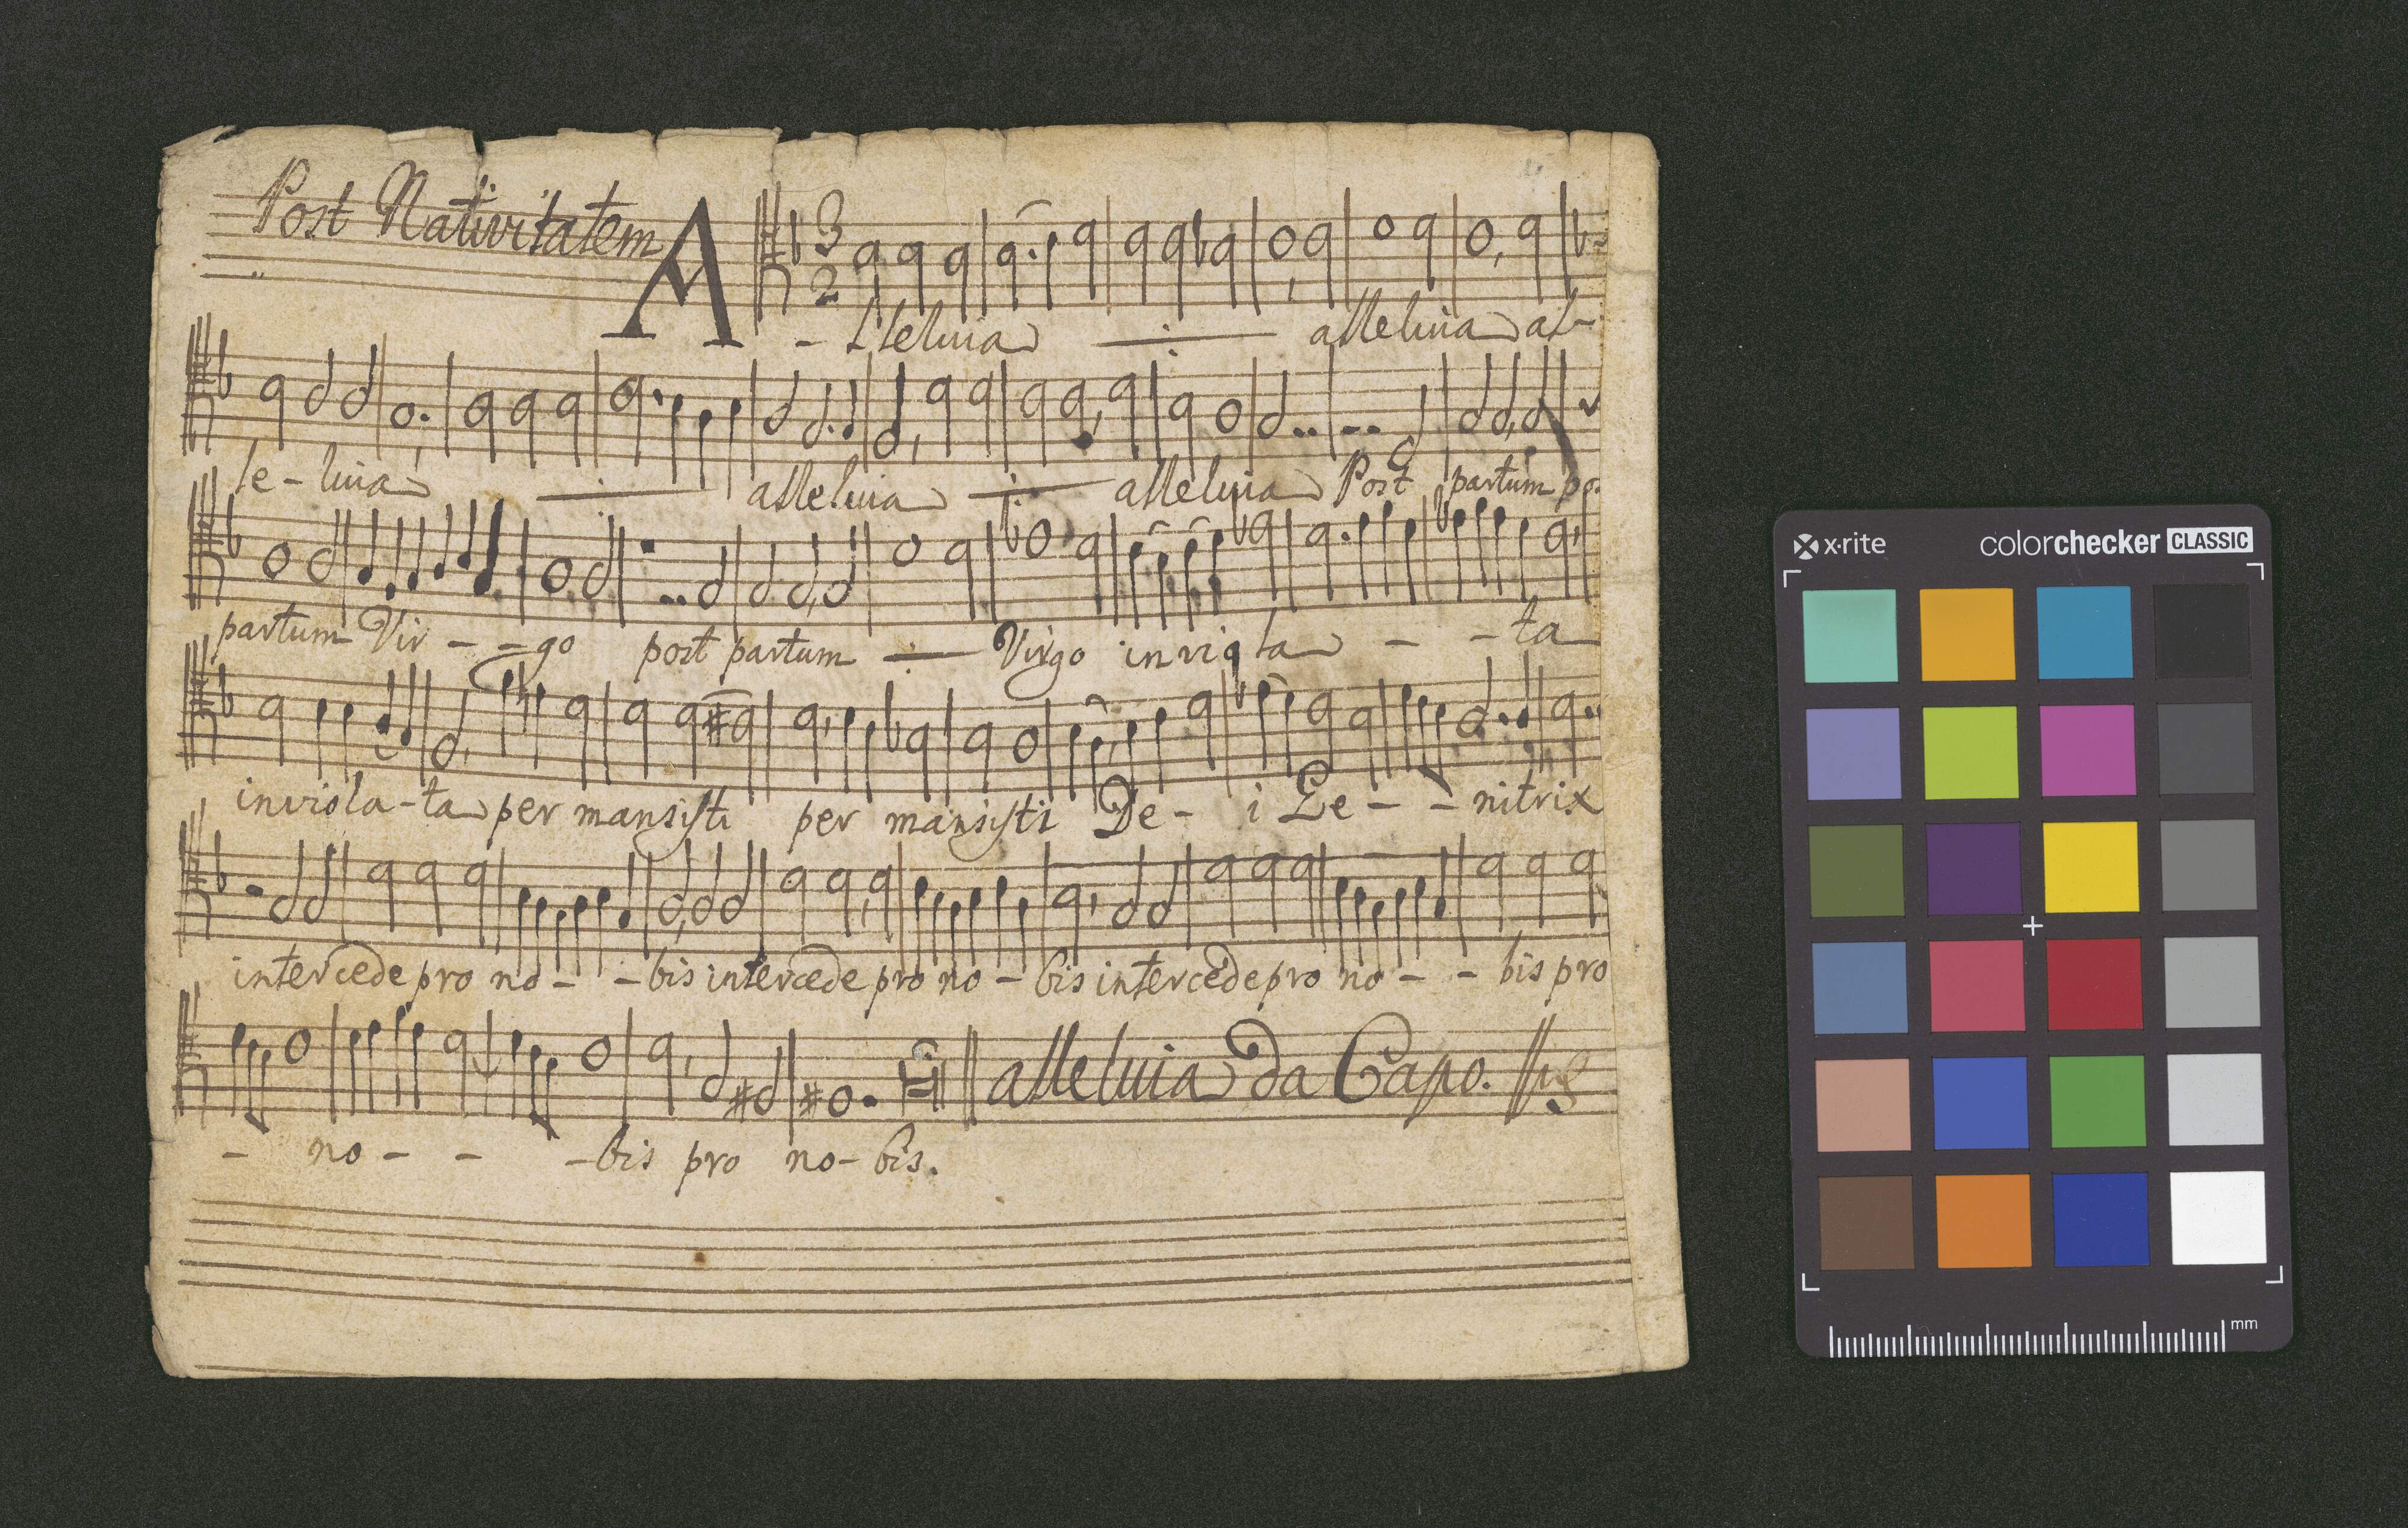 Post Nativitatem
A 3 2
- lleluia ÷ alleluia al-
le - luia ÷ alleluia ÷ alleluia Post partum po.
partum Vir - - go post partum ÷ Virgo inviola - - ta
inviola - ta per mansisti per mansisti De - i Ge - - nitrix
intercede pro no - - bis intercede pro no - bis intercede pro no - - bis pro
- no - - - bis pro no - bis.
alleluia da Capo.
x·rite colorchecker CLASSIC
mm